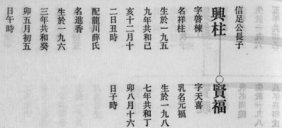 信足公長子
興柱
字啓棟
名祥柱
生於一九五
九年共和己
亥十二月十
二日丑時
配龍川薛氏
名進香
生於一九六
三年共和癸
卯五月初五
日午時
賢福
字天喜
乳名元福
生於一九八
七年共和丁
卯八月十六
日子時